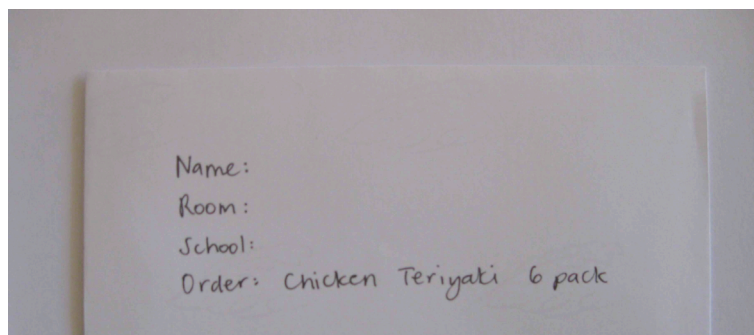 Name:
Room:
School:
Order: Chicken Teriyaki 6 pack